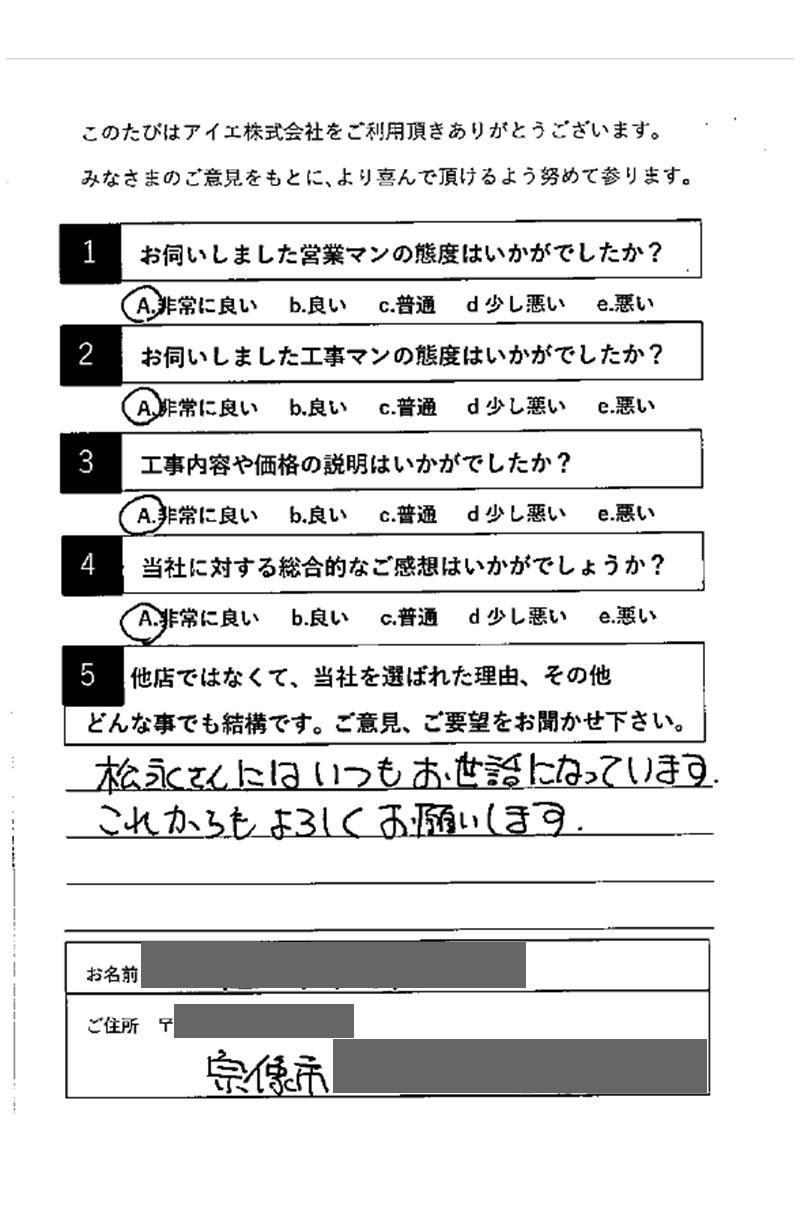 このたびはアイエ株式会社をご利用頂きありがとうございます。
みなさまのご意見をもとに、より喜んで頂けるよう努めて参ります。
1 お伺いしました営業マンの態度はいかがでしたか？
A.非常に良い b.良い c.普通 d 少し悪い e.悪い
2 お伺いしました工事マンの態度はいかがでしたか？
A.非常に良い b.良い c.普通 d 少し悪い e.悪い
3 工事内容や価格の説明はいかがでしたか？
A.非常に良い b.良い c.普通 d 少し悪い e.悪い
4 当社に対する総合的なご感想はいかがでしょうか？
A.非常に良い b.良い c.普通 d 少し悪い e.悪い
5 他店ではなくて、当社を選ばれた理由、その他
どんな事でも結構です。ご意見、ご要望をお聞かせ下さい。
松永さんにはいつもお世話になっています.
これからもよろしくお願いします.
お名前
ご住所 〒
宗像市